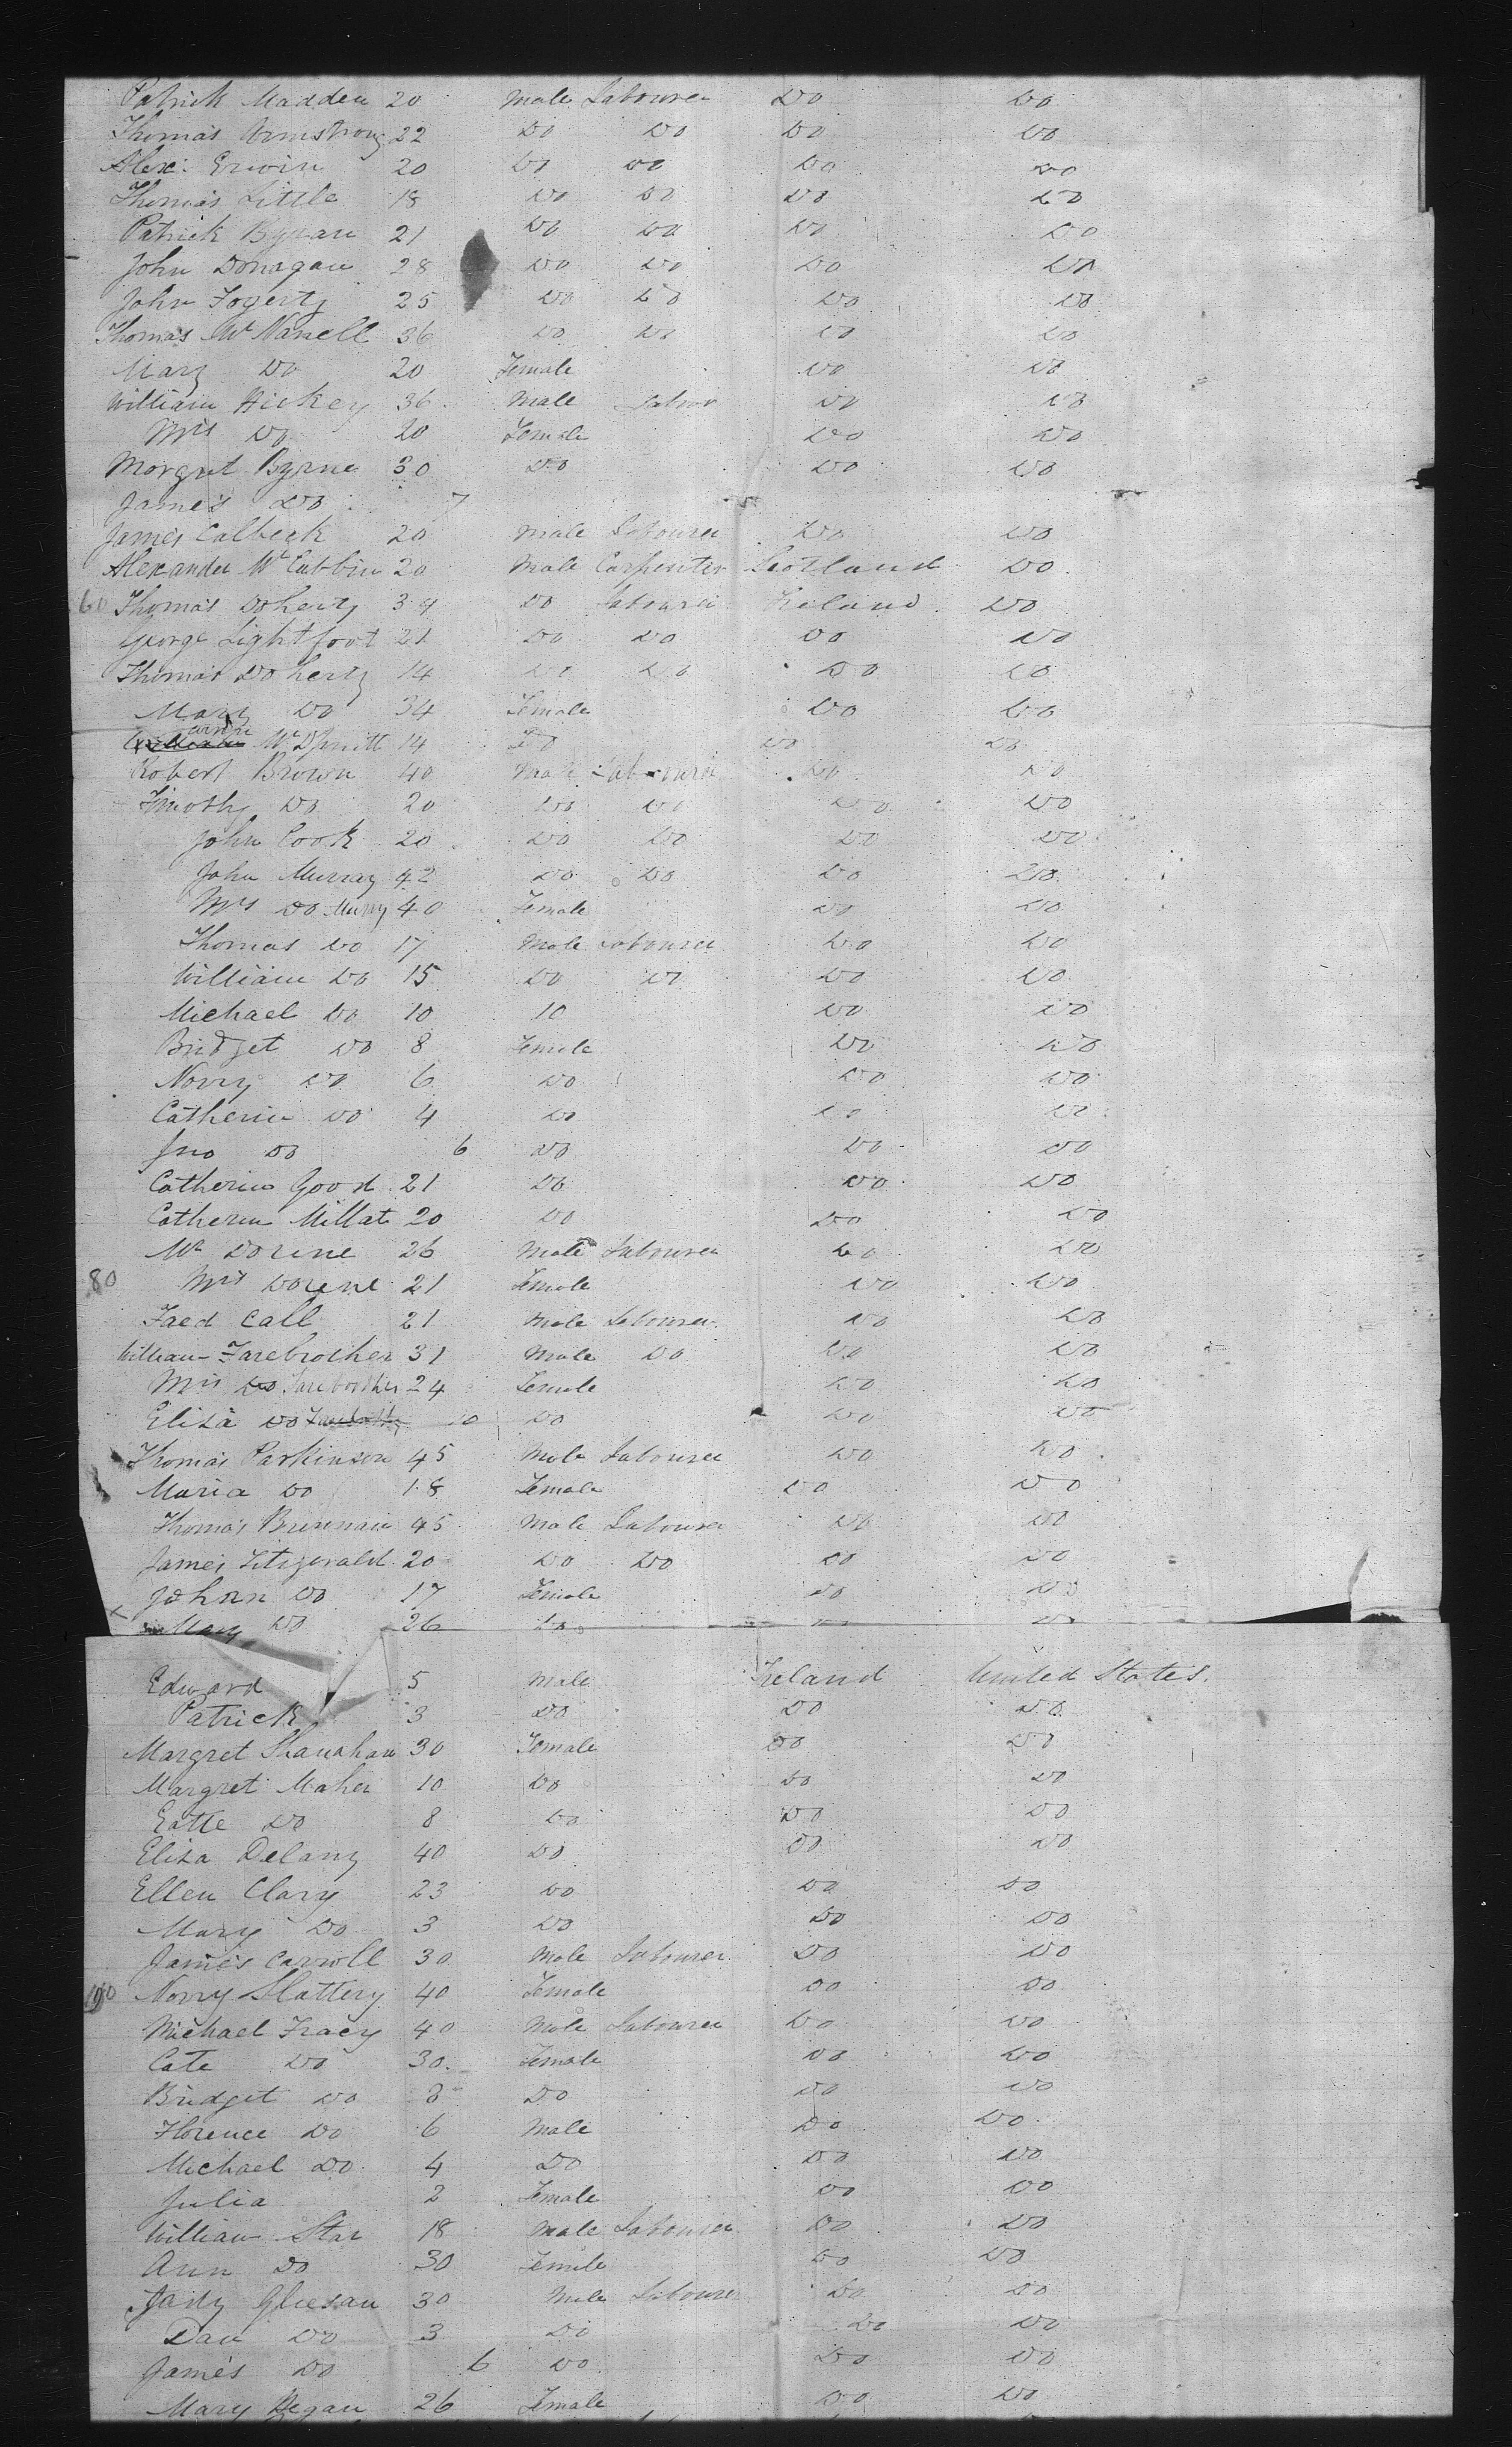 Patrick Madden 20 Male Labourer Do Do
Thomas Armstrong 22 Do Do Do Do
Alex: Erwin 20 Do Do Do Do
Thomas Little 18 Do Do Do Do
Patrick Byran 21 Do Do Do Do
John Donagan 28 Do Do Do Do
John Fogerty 25 Do Do Do Do
Thomas Mc Narrell 36 Do Do Do Do
Mary Do 20 Female Do Do
William Hickey 36 Male Labor Do Do
Mrs Do 20 Female Do Do
Morgret Byrne 30 Do Do Do
James Do 7
James Calbeck 20 Male Labourer Do Do
Alexander Mc Cubbin 20 Male Carpenter Scotland Do
60 Thomas Doherty 34 Do Labourer Ireland Do
George Lightfoot 21 Do Do Do Do
Thomas Doherty 14 Do Do Do Do
Mary Do 34 Female Do Do
14 Do Do Do
Robert Brown 40 Male Labourer Do Do
Timothy Do 20 Do Do Do Do
John Cook 20 Do Do Do Do
John Murray 42 Do Do Do Do
Mrs Do Murry 40 Female Do Do
Thomas Do 17 Male Labourer Do Do
William Do 15 Do Do Do Do
Michael Do 10 10 Do Do
Bridget Do 8 Female Do Do
Norry Do 6 Do Do Do
Catherin Do 4 Do Do Do
Jno Do 6 Do Do Do
Catherin Good 21 Do Do Do
Catherin Millat 20 Do Do Do
Mr Dorene 26 Male Labourer Do Do
80 Mrs Dorene 21 Female Do Do
Faed Call 21 Male Labourer Do Do
William Farebrother 31 Male Do Do Do
Mrs Do Farebrother 24 Female Do Do
Elisa Do 10 Do Do Do
Thomas Parkinson 45 Male Labourer Do Do
Maria Do 18 Female Do Do
Thomas Brennan 45 Male Labourer Do Do
James Fitzgerald 20 Do Do Do Do
Johan Do 17 Female Do Do
Mary Do 26 Do Do Do
Edward 5 Male Ireland United States.
Patrick 3 Do Do Do
Margret Shanahan 30 Female Do Do
Margret Maher 10 Do Do Do
Eatte Do 8 Do Do Do
Elisa Delany 40 Do Do Do
Ellen Clary 23 Do Do Do
Mary Do 3 Do Do Do
James Carroll 30 Male Labourer Do Do
100 Norry Slattery 40 Female Do Do
Michael Tracy 40 Male Labourer Do Do
Cate Do 30 Female Do Do
Bridget Do 8 Do Do Do
Florence Do 6 Male Do Do
Michael Do 4 Do Do Do
Julia 2 Female Do Do
William Star 18 Male Labourer Do Do
Ann Do 30 Female Do Do
Jady Gleesan 30 Male Labourer Do Do
Dan Do 3 Do Do Do
James Do 6 Do Do Do
Mary Regan 26 Female Do Do